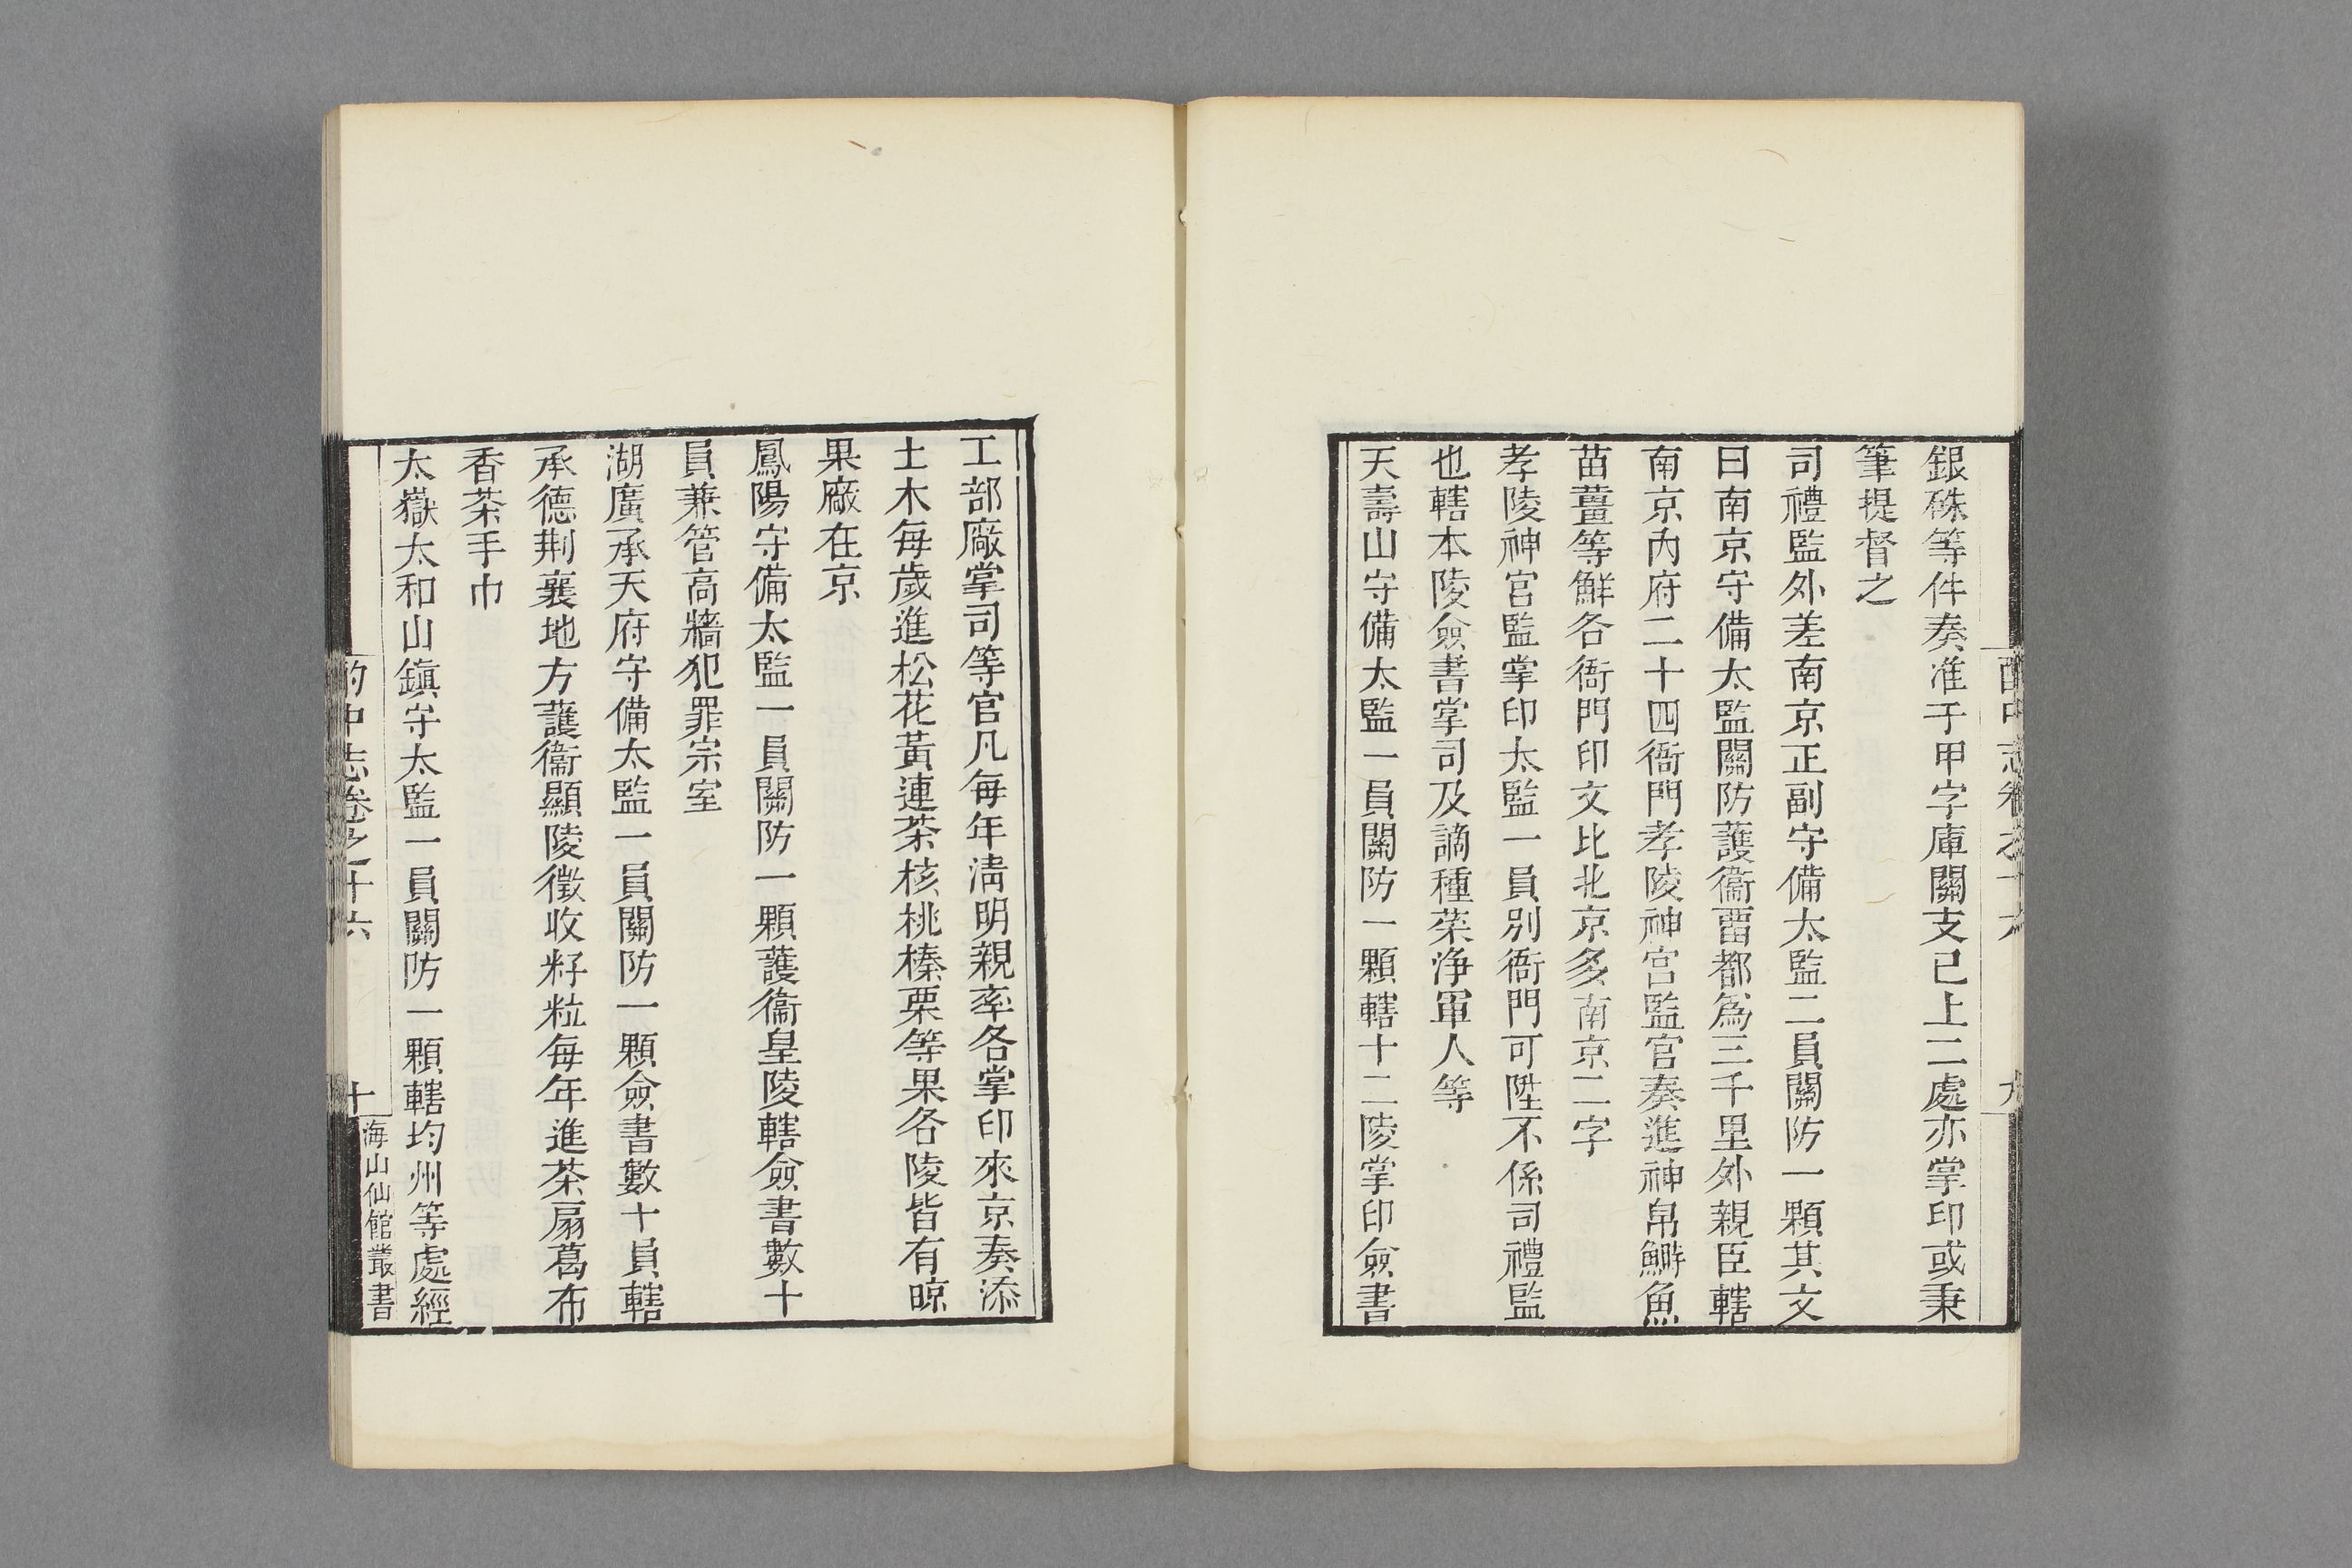 銀硃等件奏准于甲字庫關支已上二處亦掌印或秉
筆提督之
司禮監外差南京正副守備太監二員關防一顆其文
曰南京守備太監關防護衞畱都爲三千里外親臣轄
南京內府二十四衙門孝陵神宮監官奏進神帛鰣魚
苗薑等鮮各衙門印文比北京多南京二字
孝陵神宮監掌印太監一員别衙門可陞不係司禮監
也轄本陵僉書掌司及謫種菜淨軍人等
天壽山守備太監一員關防一顆轄十二陵掌印僉書
工部廠掌司等官凡每年淸明親率各掌印來京奏添
土木每歲進松花黃連茶核桃榛栗等果各陵皆有晾
果廠在京
鳳陽守備太監一員關防一顆護衞皇陵轄僉書數十
員兼管高牆犯罪宗室
湖廣承天府守備太監一員關防一顆僉書數十員轄
承德荆襄地方護衞顯陵徵收籽粒每年進茶扇葛布
香茶手巾
太嶽太和山鎮守太監一員關防一顆轄均州等處經
酌中志卷之十六
十
海山仙館叢書